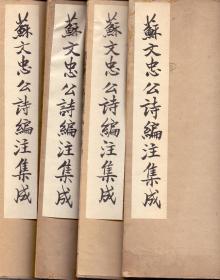 蘇文忠公詩編注集成
蘇文忠公詩編注集成
蘇文忠公詩編注集成
蘇文忠公詩編注集成